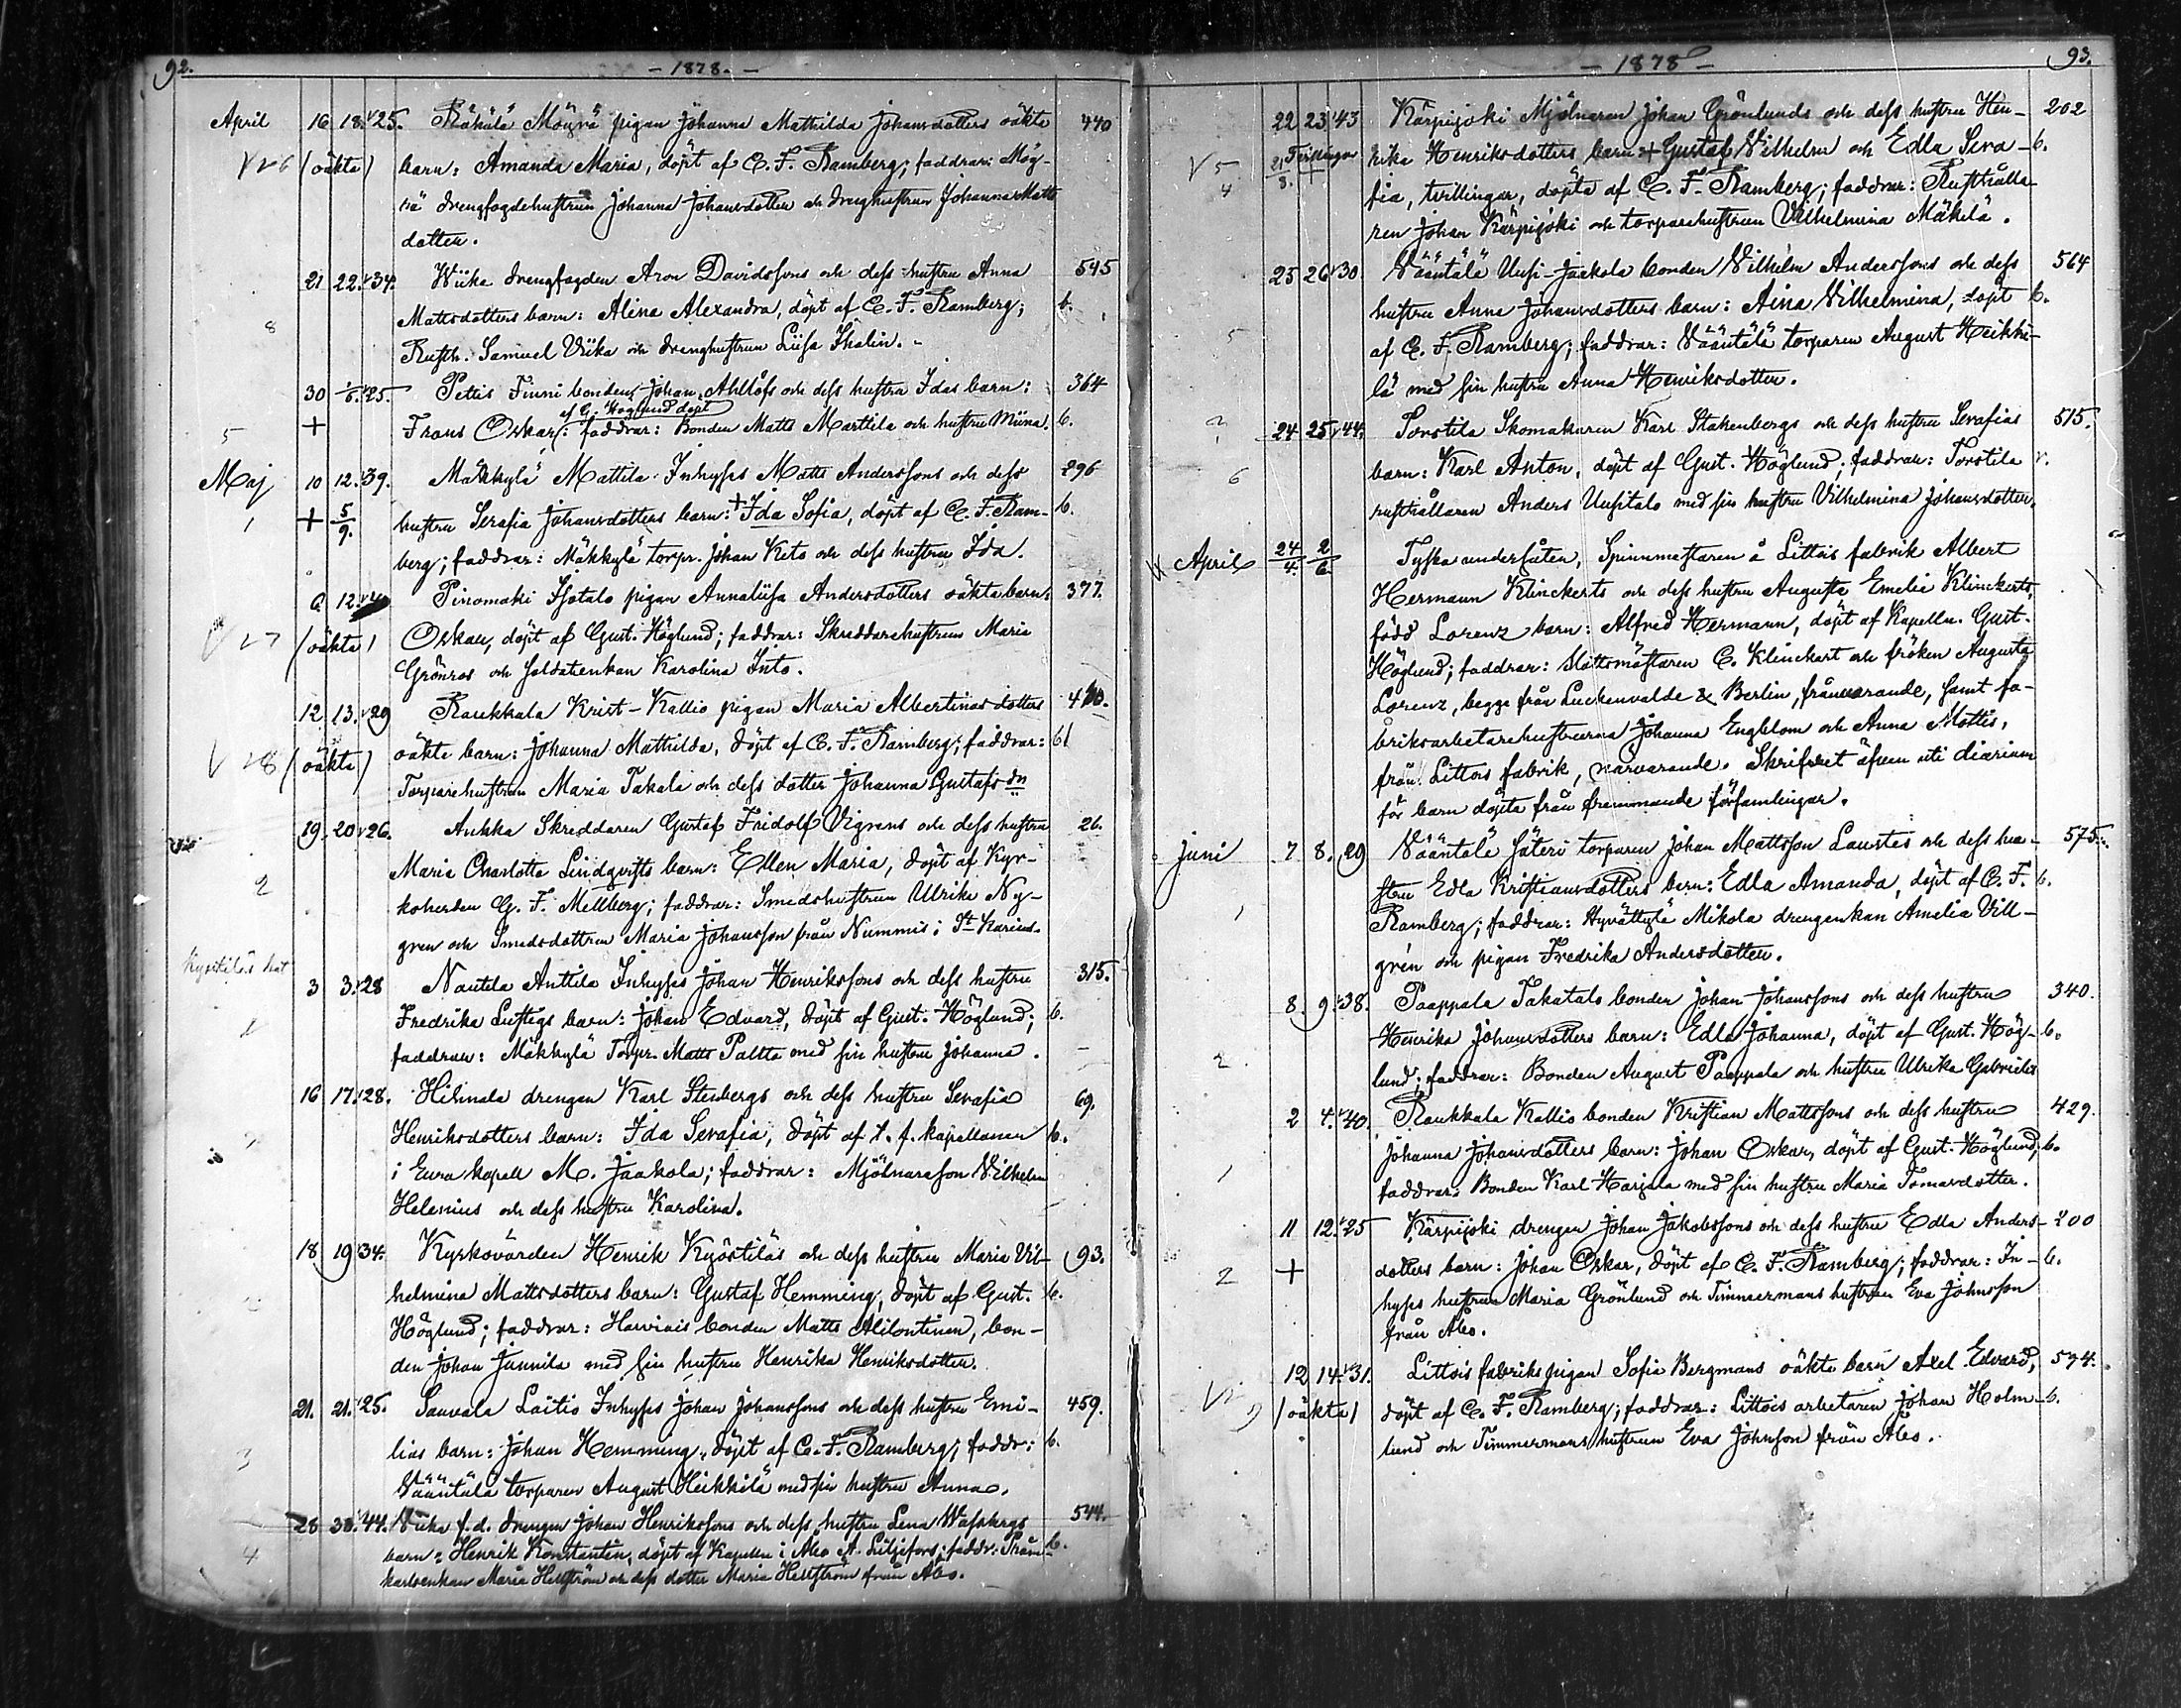 92.
- 1878. -
April 16 18. 25. Räkälä Möyrä pigan Johanna Mathilda Johansdotters oäkta 440
V 26 (oäkta) barn: Amanda Maria, döpt af C. F. Ramberg; faddrar: Möy-
rä drengfogdehustrun Johanna Johansdotter och drenghustrun Johanna Matts
dotter.
21 22. 34. Wiika drengfogden Aron Davidssons och dess hustru Anna 545
8 Mattsdotters barn: Alina Alexandra, döpt af C. F. Ramberg; b.
Rusth. Samuel Viika och drenghustrun Liisa Thalin.
30 1/5. 25. Pettis Finni bonden Johan Ahllöfs och dess hustru Idas barn: 364
af G. Höglund döpt
5 + Frans Oskar; faddrar: Bonden Matts Marttila och hustru Miina. b.
Maj 10 12. 39. Mäkkylä Mattila Inhyses Matts Anderssons och dess 296
1 + 5/9. hustru Serafia Johansdotters barn: + Ida Sofia, döpt af C. F. Ram- b.
berg; faddrar: Mäkkylä torpr. Johan Keto och dess hustru Ida.
6 12. Pinomäki Isotalo pigan Annaliisa Andersdotters oäkta barn: 377.
V 27 (oäkta) Oskar, döpt af Gust. Höglund; faddrar: Skreddarehustrun Maria
Grönros och Soldatenkan Karolina Into.
12 13. 29 Raukkala Krist-Kallio pigan Maria Albertinas dotters
V 28 (oäkta) oäkta barn: Johanna Mathilda, döpt af C. F. Ramberg; faddrar: b.
Torparehustrun Maria Takala och dess dotter Johanna Gustafsdn
19. 20 26. Aukka Skreddaren Gustaf Fridolf Vigrens och dess hustru 26.
2 Maria Charlotta Lindqvists barn: Ellen Maria, döpt af Kyr-
koherden G. F. Mellberg; faddrar: Smedshustrun Ulrika Ny-
gren och Smedsdottren Maria Johansson från Nummis i St Karins.
3 3. 28 Nautela Anttila Inhyses Johan Henrikssons och dess hustru 315.
Fredrika Luftigs barn: Johan Edvard, döpt af Gust. Höglund; b.
faddrar: Mäkkylä Torpr. Matts Paltta med sin hustru Johanna.
16 17. 28. Hihnala drengen Karl Stenbergs och dess hustru Serafia 69.
Henriksdotters barn: Ida Serafia, döpt af t. f. kapellanen b.
i Eura kapell M. Jaakola; faddrar: Mjölnaresson Vilhelm
Helenius och dess hustru Karolina.
18. 19. 34. Kyrkovärden Henrik Kyöstiläs och dess hustru Maria Vil- 93.
helmina Mattsdotters barn: Gustaf Hemming, döpt af Gust. b.
Höglund; faddrar: Harviais bonden Matts Alilontinen, bon-
den Johan Junnila med sin hustru Henrika Henriksdotter.
21. 21. 25. Sauvala Laitis Inhyses Johan Johanssons och dess hustru Emi- 459.
3 lias barn: Johan Hemming, döpt af C. F. Ramberg; faddr: b.
Vääntälä torparen August Heikkilä med sin hustru Anna.
28 30. 44. Viika f. d. drengen Johan Henrikssons och dess hustru Lena 544.
4 barn: Henrik Konstantin, döpt af Kapelln i Åbo A. Liljefors; faddr: b.
karlsenkan Maria Hellström och dess dotter Maria Hellström från Åbo.
- 1878 -
93.
22 23 43 Kärpijoki Mjölnaren Johan Grönlunds och dess hustru Hen- 202
V 5 4 21/8. Tvillingar + rika Henriksdotters barn: + Gustaf Vilhelm och Edla Sera- b.
fia, tvillingar, döpta af C. F. Ramberg; faddrar: Rusthålla-
ren Johan Kärpijoki och torparehustrun Vilhelmina Mäkilä.
25 26 30 Vääntälä Uusi-Jaakola bonden Vilhelm Anderssons och dess 564
5 hustru Anna Johansdotters barn: Aina Vilhelmina, döpt b.
af C. F. Ramberg; faddrar: Vääntälä torparen August Heikki-
lä med sin hustru Anna Henriksdotter.
24 25 44. Torstila Skomakaren Karl Stakenbergs och dess hustru Serafias 515.
6 barn: Karl Anton, döpt af Gust. Höglund; faddrar: Torstila
rusthållaren Anders Uusitalo med sin hustru Vilhelmina Johansdotter.
April 24/4. 2/6. Tyska undersåten, Spinnmästaren å Littois fabrik Albert
Hermann Klinckerts och dess hustru Augusta Emelie Klinckerts,
född Lorenz barn: Alfred Hermann, döpt af Kapelln. Gust.
Höglund; faddrar: Slottsmästaren C. Klinckert och fröken Augusta
Lorenz, begge från Luckenvalde & Berlin, frånvarande, samt fa-
briksarbetarehustrurna Johanna Engblom och Anna Mottis,
från Littois fabrik, närvarande. Skrifvet äfven uti diarium
för barn döpta från fremmande församlingar.
Juni 7 8. 29 Vääntälä Säteri torparen Johan Mattsson Laustes och dess hu- 575.
1 stru Edla Kristiansdotters barn: Edla Amanda, döpt af C. F. b.
Ramberg; faddrar: Hyvättylä Mikola drengenkan Amelia Vill-
grén och pigan Fredrika Andersdotter.
8. 9. 38. Paappala Takatalo bonden Johan Johanssons och dess hustru 340.
2 Henrika Johansdotters barn: Edla Johanna, döpt af Gust. Hög- b.
lund; faddrar: Bonden August Paappala och hustru Ulrika Gabrielsd
2 4. 40. Raukkala Kallio bonden Kristian Mattssons och dess hustru 429.
1 Johanna Johansdotters barn: Johan Oskar, döpt af Gust. Höglund; b.
faddrar: Bonden Karl Harjula med sin hustru Maria Tomasdotter.
11 12. 25 Kärpijoki drengen Johan Jakobssons och dess hustru Edla Anders- 200
2 + dotters barn: Johan Oskar, döpt af C. F. Ramberg; faddrar: In- b.
hyses hustrun Maria Grönlund och Timmermans hustrun Eva Johnsson
från Åbo.
12 14. 31. Littois fabrikspigan Sofia Bergmans oäkta barn Axel Edvard, 574.
(oäkta) döpt af C. F. Ramberg; faddrar: Littois arbetaren Johan Holm- b.
lund och Timmermans hustrun Eva Johnson från Åbo.